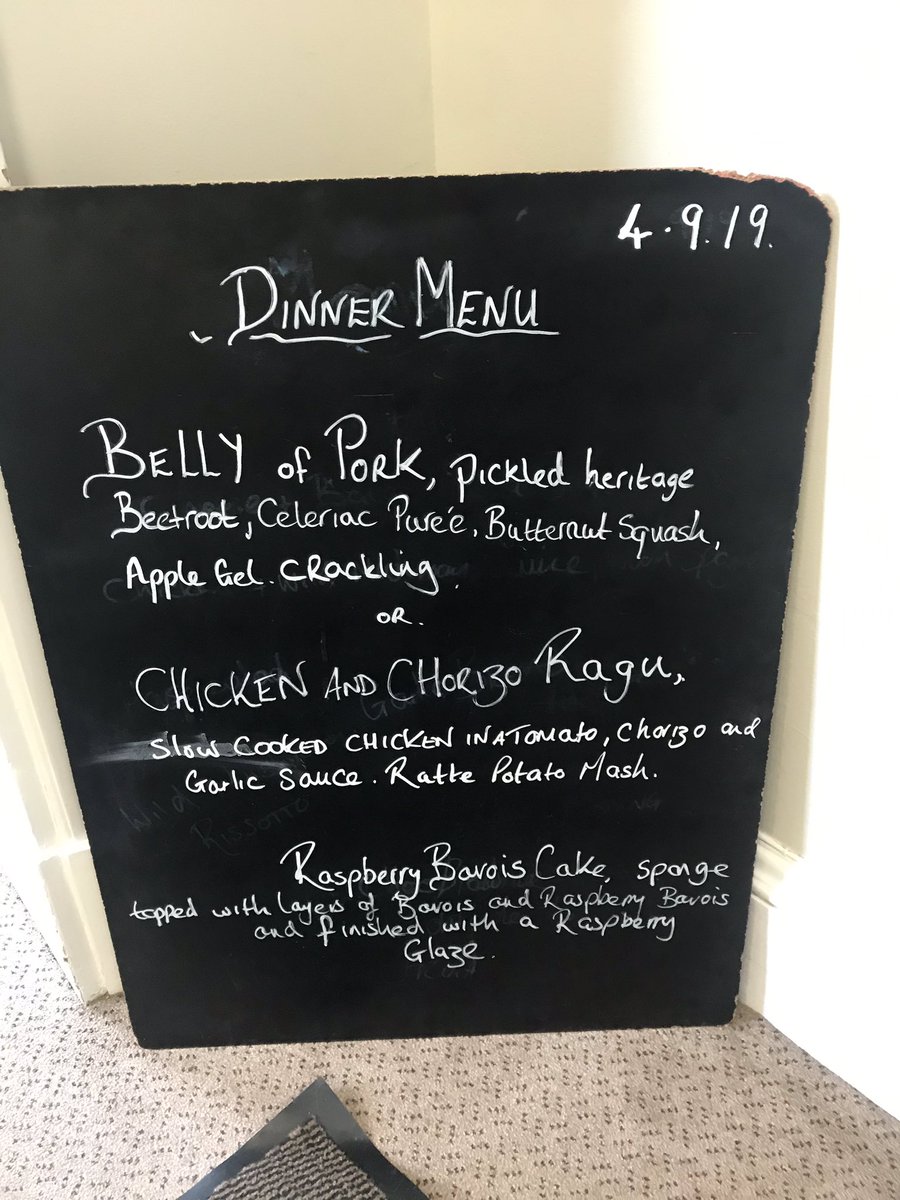 4.9.19.
DINNER MENU
BELLY of PORK, pickled heritage
Beetroot, Celeriac Pureé, Butternut Squash,
Apple Gel. CRackling.
OR.
CHICKEN AND CHORIZO Ragu,
Slow COOKED CHICKEN IN A TOMATO, Chorizo and
Garlic Sauce. Ratte Potato Mash.
Wild
RISSOTTO
Raspberry Bavois Cake, sponge
topped with layers of Bavois and Raspberry Bavois
and finished with a Raspberry
Glaze.